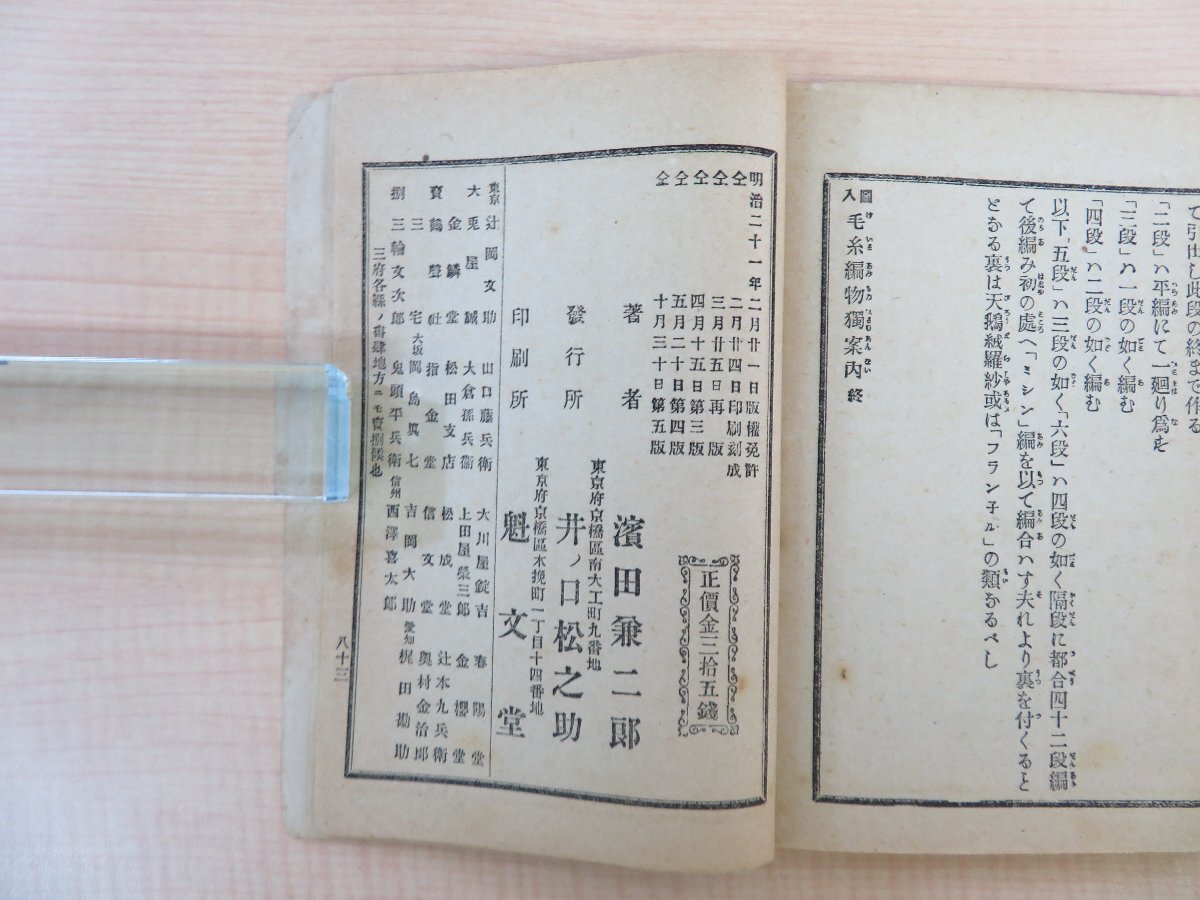 て引出し此段の終まで作る
「二段」ハ平編にて一廻り爲を
「三段」ハ一段の如く編む
「四段」ハ二段の如く編む
以下「五段」ハ三段の如く「六段」ハ四段の如く隔段に都合四十二段編
て後編み初の處へ「ミシン」編を以て編合ハす夫れより裏を付くると
どなる裏は天鵞絨羅紗或は「フランネル」の類なるべし
圖入毛糸編物獨案内終
明治二十一年二月廿一日版權免許
仝二月廿四日印刷刻成
仝三月廿五日再版
仝四月十五日第三版
仝五月二十日第四版
仝十月三十日第五版
正價金三拾五錢
著者
濱田兼二郎
東京府京橋區南大工町九番地
發行所
井ノ口松之助
東京府京橋區木挽町一丁目十四番地
印刷所
魁文堂
東京辻岡文助 山口藤兵衛 大川屋錠吉 春陽堂
大兎屋誠 大倉孫兵衛 上田屋榮三郎 金櫻堂
金鱗堂 松田支店 松成堂 辻本九兵衛
賣鶴聲社 指金堂 信文堂 奥村金治郎
三宅 大坂岡島眞七 吉岡大助 愛知梶田勘助
捌三輪文次郎 鬼頭平兵衛 信州西澤喜太郎
三府各縣ノ書肆地方ニモ賣捌候也
八十三